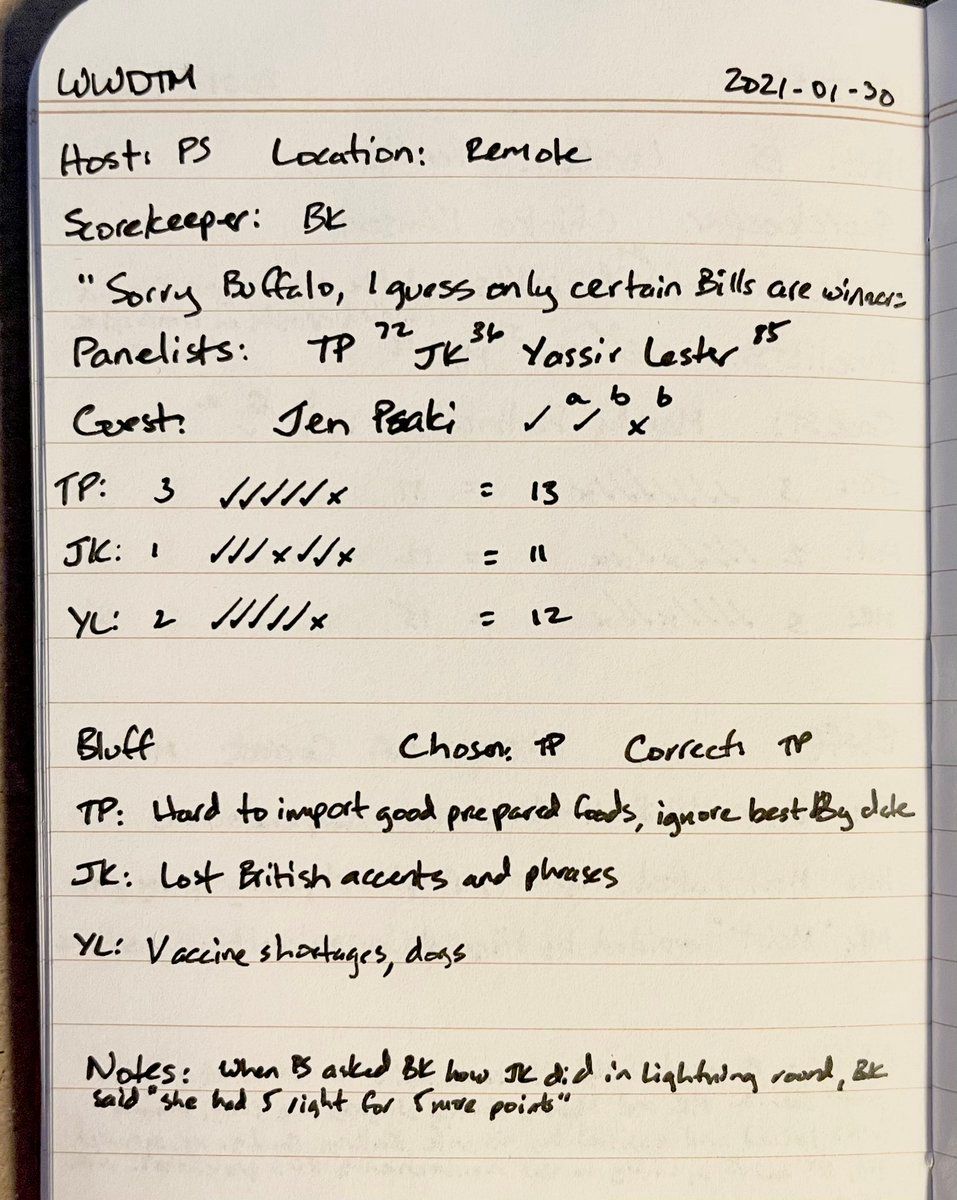 WWDTM 2021-01-30
Host: PS Location: Remote
Scorekeeper: BK
"Sorry Buffalo, I guess only certain Bills are winners
Panelists: TP 72 JK 36 Yassir Lester 85
Guest: Jen Psaki ✓ a ✓ b x b
TP: 3 ✓✓✓✓✓x = 13
JK: 1 ✓✓✓x✓✓x = 11
YL: 2 ✓✓✓✓✓x = 12
Bluff Chosen: TP Correct: TP
TP: Hard to import good prepared foods, ignore best By date
JK: Lost British accents and phrases
YL: Vaccine shortages, dogs
Notes: When PS asked BK how JK did in Lightning round, BK
said "she had 5 right for 5 more points"